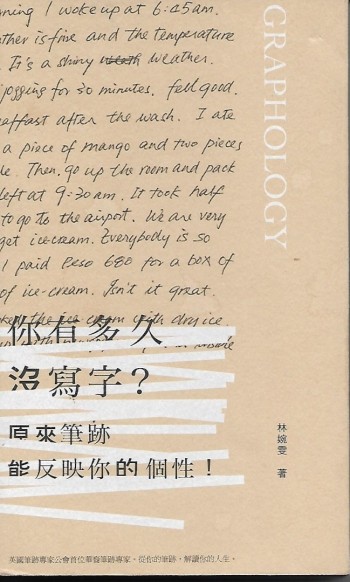 ning I woke up at 6:45am.
ther is fine and the temperature
It's a shiny weather.
jogging for 30 minutes. feel good.
eaffast after the wash. I ate
a piece of mango and two pieces
de. Then, go up the room and pack
left at 9:30am. It took half
to go to the airport. We are very
get ice-cream. Everybody is so
I paid Peso 680 for a box of
of ice-cream. Isn't it great.
the ice cream with dry ice
GRAPHOLOGY
你有多久
沒寫字？
原來筆跡
能反映你的個性！
林婉雯 著
英國筆跡專家公會首位華裔筆跡專家，從你的筆跡，解讀你的人生。